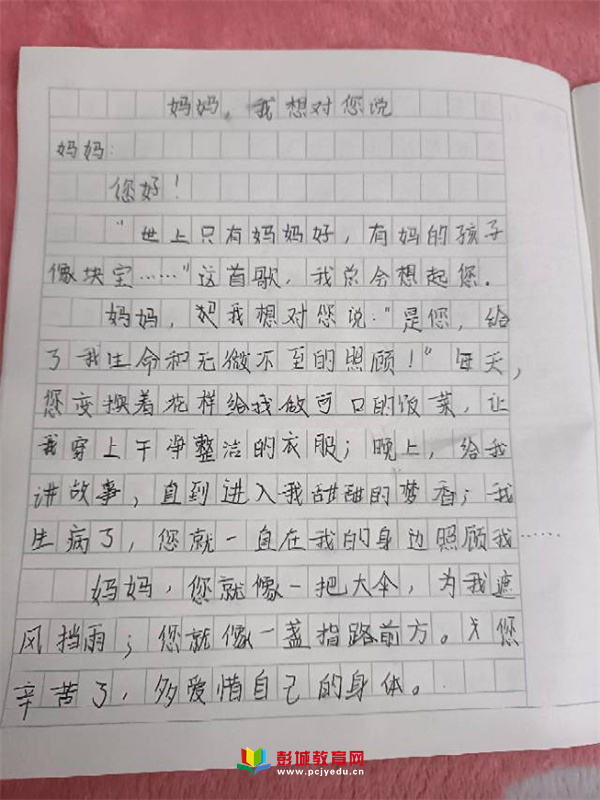 妈妈，我想对您说
妈妈：
您好！
“世上只有妈妈好，有妈的孩子
像块宝……”这首歌，我总会想起您.
妈妈，我想对您说：“是您，给
了我生命和无微不至的照顾！”每天，
您变换着花样给我做可口的饭菜，让
我穿上干净整洁的衣服；晚上，给我
讲故事，直到进入我甜甜的梦香；我
生病了，您就一直在我的身边照顾我……
妈妈，您就像一把大伞，为我遮
风挡雨；您就像一盏指路前方。您
辛苦了，多爱惜自己的身体。
彭城教育网
www.pcjyedu.cn